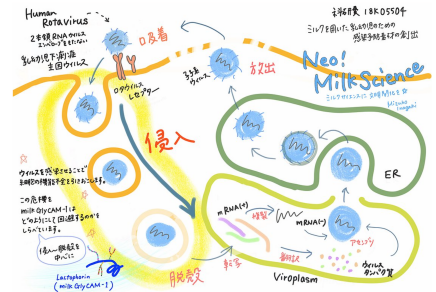 Human
Rotavirus
2本鎖RNAウイルス
エンベロープをもたない
乳幼児下痢症
主因ウイルス
吸着
ロタウイルス
レセプター
子孫
ウイルス
放出
科研費 18K05504
ミルクを用いた乳幼児のための
感染予防素材の創出
Neo!
MilkScience
ミルクサイエンスに
Mizuho
Inagaki
侵入
ER
ウイルスを感染させることで
この危機を
milk GlyCAM-1は
どのようにして回避するのかを
しらべています。
侵入〜脱殻を
中心に
Lactophorin
(milk GlyCAM-1)
脱殻
転写
mRNA(+)
複製
mRNA(-)
翻訳
アセンブリ
ウイルス
タンパク質
Viroplasm